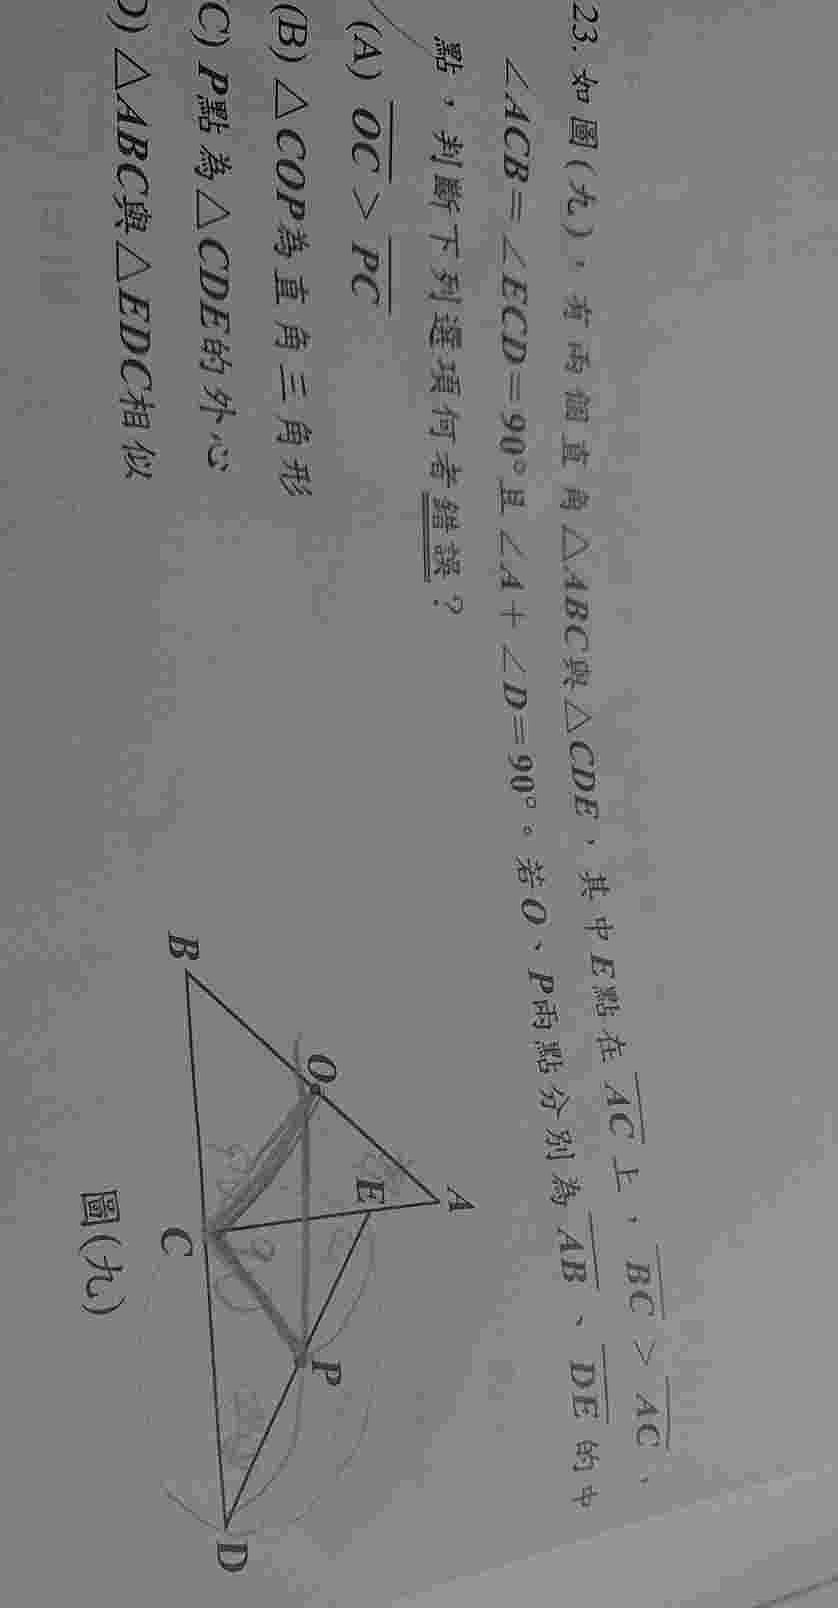 23. 如圖(九)，有兩個直角△ABC與△CDE，其中E點在AC上，BC＞AC，
∠ACB=∠ECD=90°且∠A+∠D=90°。若O、P兩點分別為AB、DE的中
點，判斷下列選項何者錯誤？
(A) OC > PC
(B) △COP為直角三角形
C) P點為△CDE的外心
D) △ABC與△EDC相似
A
O
E
P
B
C
D
圖(九)